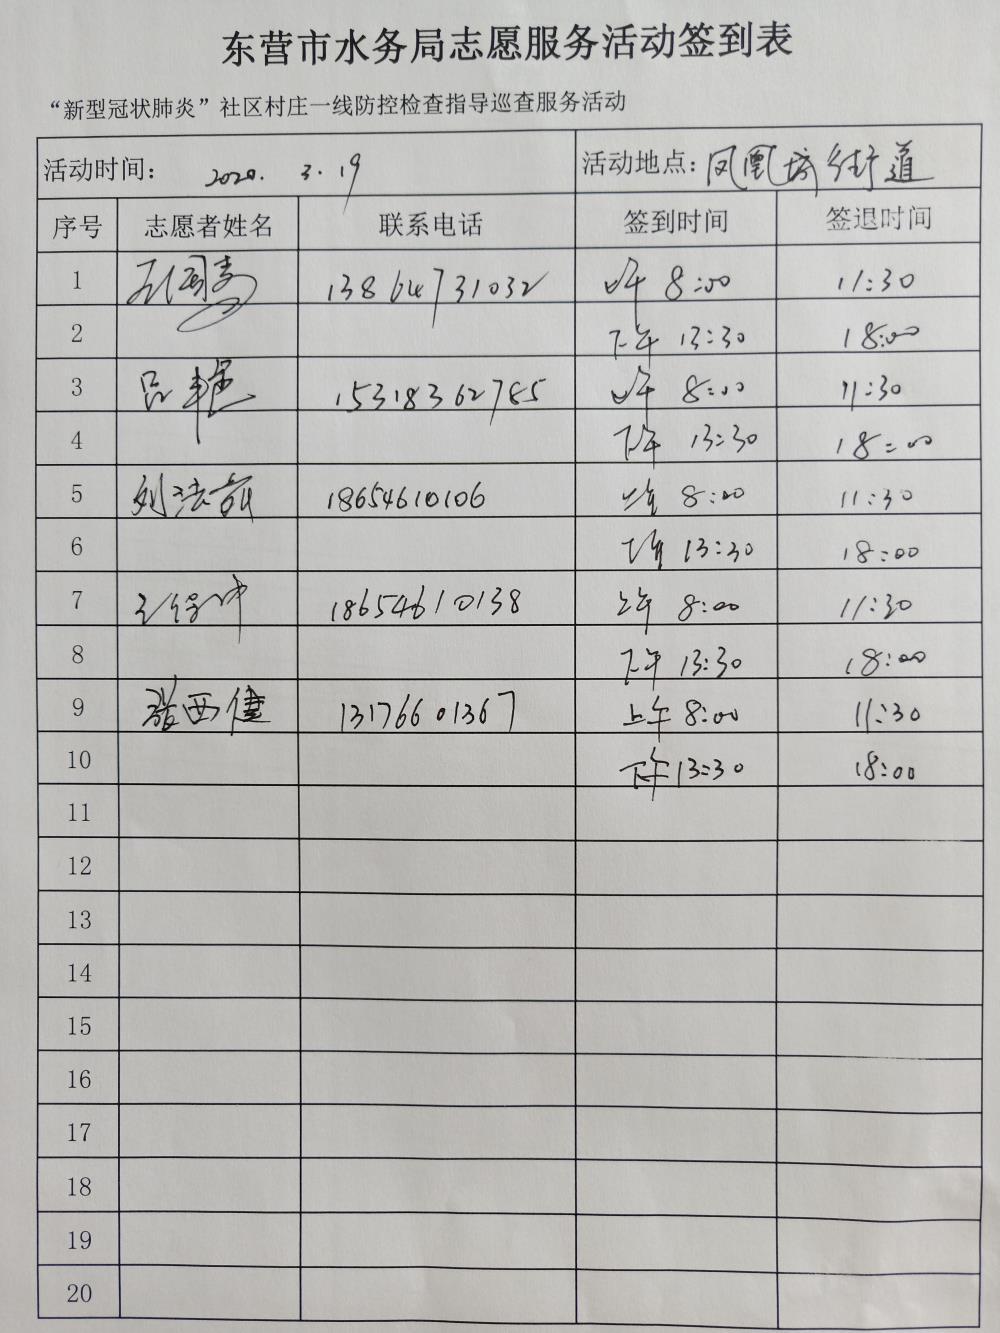 东营市水务局志愿服务活动签到表
“新型冠状肺炎”社区村庄一线防控检查指导巡查服务活动
活动时间： 2020. 3. 19 活动地点：凤凰城街道
序号 志愿者姓名 联系电话 签到时间 签退时间
1 13864731032 上午 8:00 11:30
2 下午 13:30 18:00
3 15318362785 上午 8:00 11:30
4 下午 13:30 18:00
5 18654610106 上午 8:00 11:30
6 下午 13:30 18:00
7 18654610138 上午 8:00 11:30
8 下午 13:30 18:00
9 张西健 13176601367 上午 8:00 11:30
10 下午 13:30 18:00
11
12
13
14
15
16
17
18
19
20